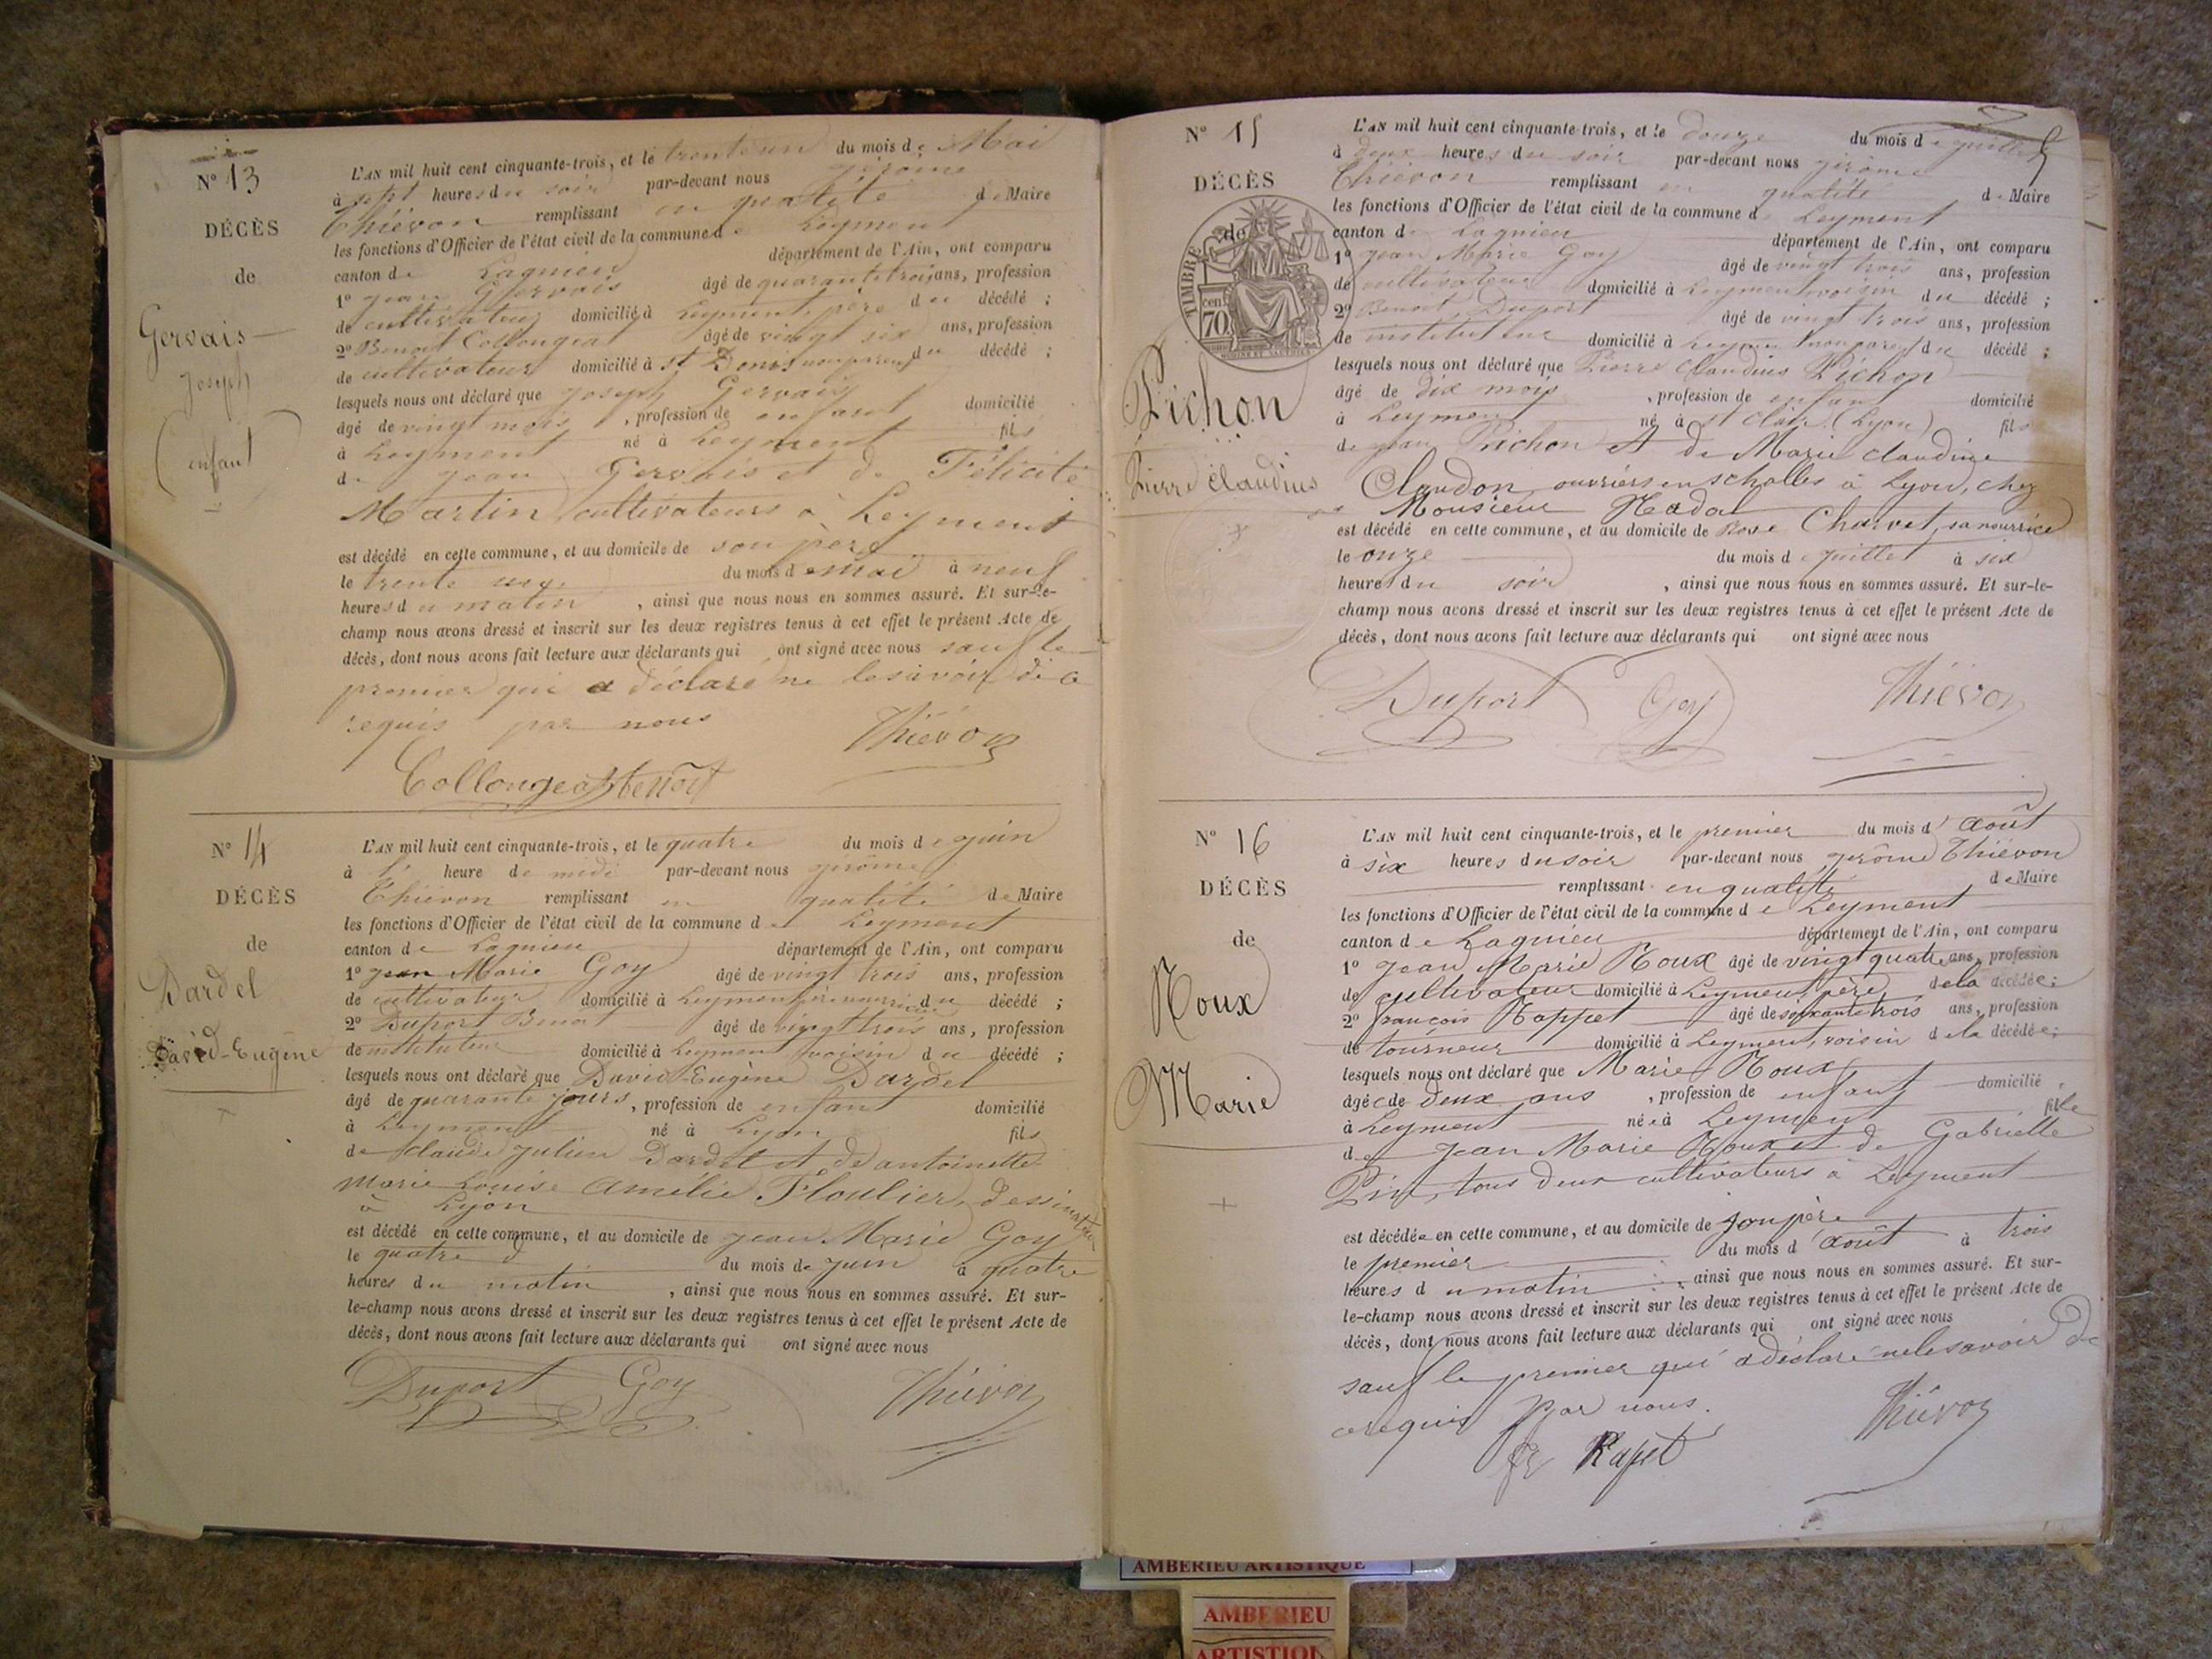 N° 13
DÉCÈS
de
Gervais
Joseph
(enfant)
L'AN mil huit cent cinquante-trois, et le trente un du mois de Mai
à sept heures du soir par-devant nous gérôme
Thiévon remplissant en qualité de Maire
les fonctions d'Officier de l'état civil de la commune de Leyment
canton de Lagnieu département de l'Ain, ont comparu
1° jean Gervais âgé de quarante trois ans, profession
de cultivateur domicilié à Leyment, père du décédé ;
2° Benoit Collongeat âgé de vingt six ans, profession
de cultivateur domicilié à St Denis non parent du décédé ;
lesquels nous ont déclaré que joseph Gervais
âgé de vingt mois, profession de enfant domicilié
à Leyment né à Leyment fils
de jean Gervais et de Félicité
Martin, cultivateurs à Leyment
est décédé en cette commune, et au domicile de son père
le trente un du mois de mai à neuf
heures du matin, ainsi que nous nous en sommes assuré. Et sur-le-
champ nous avons dressé et inscrit sur les deux registres tenus à cet effet le présent Acte de
décès, dont nous avons fait lecture aux déclarants qui ont signé avec nous sauf le
premier qui a déclaré ne le savoir de ce
requis par nous
Thiévon
Collongeat Benoit
N° 14
DÉCÈS
de
Dardel
David-Eugène
L'AN mil huit cent cinquante-trois, et le quatre du mois de juin
à l' heure de midi par-devant nous gérôme
Thiévon remplissant en qualité de Maire
les fonctions d'Officier de l'état civil de la commune de Leyment
canton de Lagnieu département de l'Ain, ont comparu
1° jean Marie Goy âgé de vingt trois ans, profession
de cultivateur domicilié à Leyment père nourricier du décédé ;
2° Duport Benoit âgé de vingt trois ans, profession
de instituteur domicilié à Leyment voisin du décédé ;
lesquels nous ont déclaré que David-Eugène Dardel
âgé de quarante jours, profession de enfant domicilié
à Leyment né à Lyon fils
de claude julien Dardel et de antoinette
Marie Louise Amélie Floulier, dessinateur
à Lyon
est décédé en cette commune, et au domicile de jean Marie Goy
le quatre du mois de juin à quatre
heures du matin, ainsi que nous nous en sommes assuré. Et sur-
le-champ nous avons dressé et inscrit sur les deux registres tenus à cet effet le présent Acte de
décès, dont nous avons fait lecture aux déclarants qui ont signé avec nous
Duport Goy Thiévon
N° 15
DÉCÈS
de
TIMBRE
cen
70
Pichon
Pierre Claudius
L'AN mil huit cent cinquante-trois, et le douze du mois de juillet
à deux heures du soir par-devant nous gérôme
Thiévon remplissant en qualité de Maire
les fonctions d'Officier de l'état civil de la commune de Leyment
canton de Lagnieu département de l'Ain, ont comparu
1° jean Marie Goy âgé de vingt trois ans, profession
de cultivateur domicilié à Leyment voisin du décédé ;
2° Benoit Duport âgé de vingt trois ans, profession
de instituteur domicilié à Leyment non parent du décédé ;
lesquels nous ont déclaré que Pierre Claudius Pichon
âgé de dix mois, profession de enfant domicilié
à Leyment né à St Clair (Lyon) fils
de jean Pichon et de Marie claudine
Claudon ouvriers en schalles à Lyon, chez
Monsieur Nadal
est décédé en cette commune, et au domicile de Rose Charvet, sa nourrice
le onze du mois de juillet à six
heures du soir, ainsi que nous nous en sommes assuré. Et sur-le-
champ nous avons dressé et inscrit sur les deux registres tenus à cet effet le présent Acte de
décès, dont nous avons fait lecture aux déclarants qui ont signé avec nous
Duport Goy Thiévon
N° 16
DÉCÈS
de
Roux
Marie
L'AN mil huit cent cinquante-trois, et le premier du mois d'août
à six heures du soir par-devant nous gerôme Thiévon
remplissant en qualité de Maire
les fonctions d'Officier de l'état civil de la commune de Leyment
canton de Lagnieu département de l'Ain, ont comparu
1° jean Marie Roux âgé de vingt quatre ans, profession
de cultivateur domicilié à Leyment, père de la décédée ;
2° françois Rappet âgé de soixante trois ans, profession
de tourneur domicilié à Leyment, voisin de la décédée ;
lesquels nous ont déclaré que Marie Roux
âgée de deux ans, profession de enfant domicilié
à Leyment née à Leyment fille
de jean Marie Roux et de Gabrielle
Pin, tous deux cultivateurs à Leyment
est décédée en cette commune, et au domicile de son père
le premier du mois d'août à trois
heures du matin, ainsi que nous nous en sommes assuré. Et sur-
le-champ nous avons dressé et inscrit sur les deux registres tenus à cet effet le présent Acte de
décès, dont nous avons fait lecture aux déclarants qui ont signé avec nous
sauf le premier qui a déclaré ne le savoir de
ce requis par nous.
fr Rapet Thiévon
AMBERIEU ARTISTIQUE
AMBERIEU